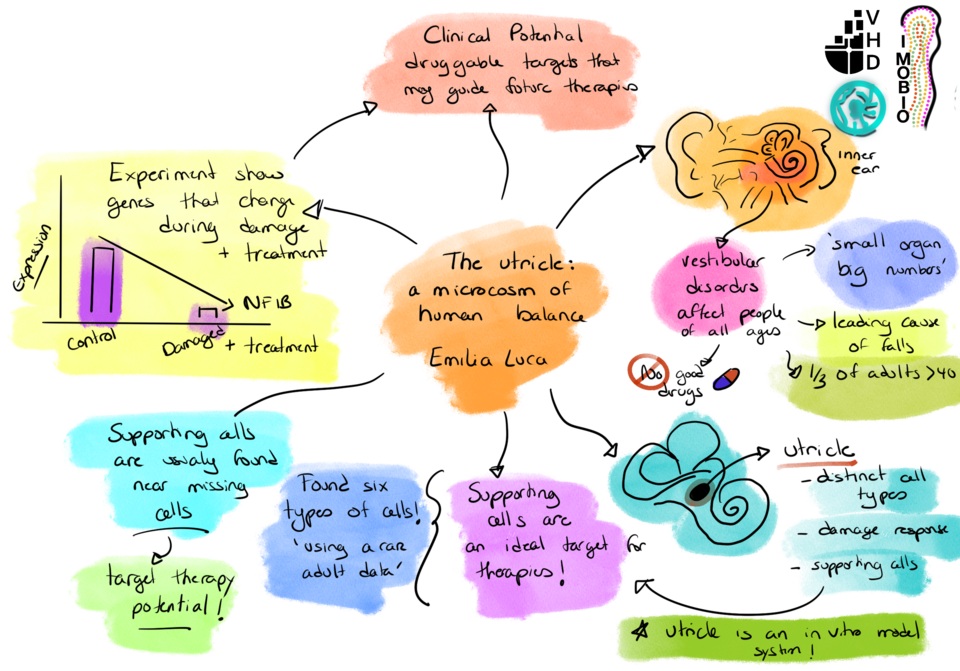 Clinical Potential
druggable targets that
may guide future therapies
VHD
IMOBIO
inner
ear
Experiment show
genes that change
during damage
+ treatment
Expression
NFIB
Control
Damaged + treatment
The utricle:
a microcosm of
human balance
Emilia Luca
vestibular
disorders
affect people
of all ages
'small organ
big numbers'
leading cause
of falls
1/3 of adults >40
No good
drugs
Supporting cells
are usualy found
near missing
cells
target therapy
potential!
Found six
types of cells!
'using a rare
adult data'
Supporting
cells are
an ideal target for
therapies!
utricle
- distinct cell
types
- damage response
- supporting cells
utricle is an in vitro model
system!